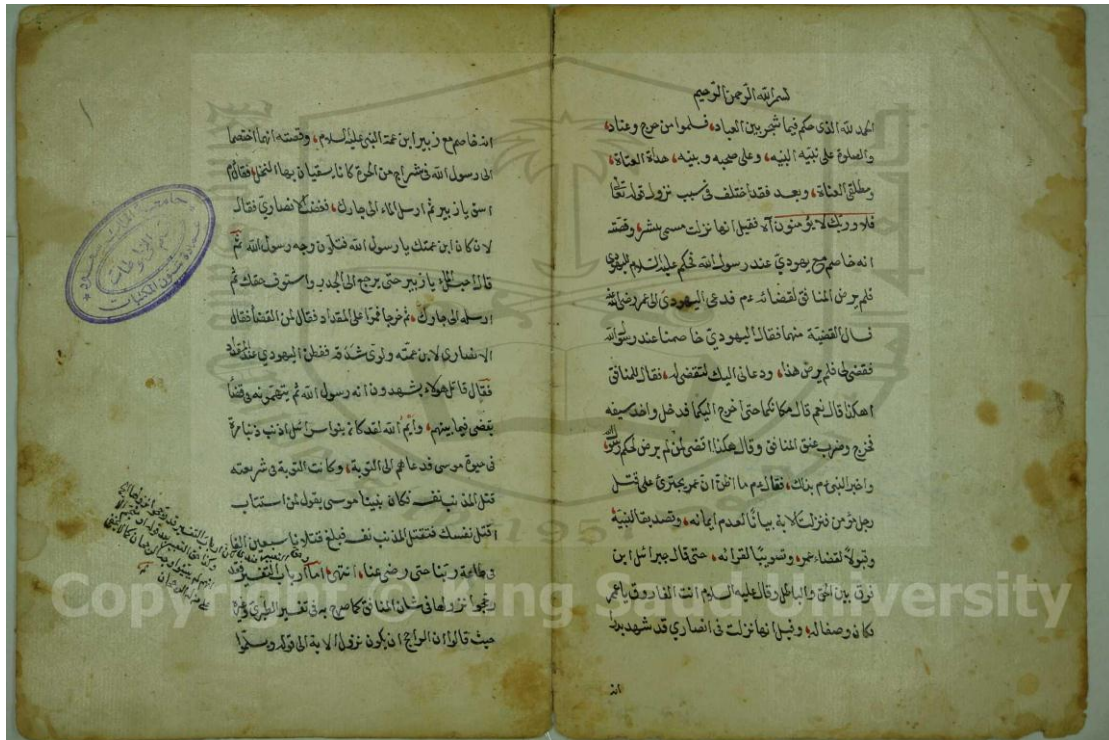 بسم الله الرحمن الرحيم
الحمد لله الذى حكم فيما شجر بين العباد، فسلموا من حرج وعناد،
والصلوة على نبيه النبيه، وعلى صحبه وبنيه، هداة العتاة،
ومطلقى العناة، وبعد فقد اختلف فى سبب نزول قوله تعا
فلا وربك لا يؤمنون آه فقيل انها نزلت بشر، وقصته
انه خاصم مع يهودى عند رسول الله فحكم عليه السلام لليهودى
فلم يرض المنافق لقضائه ءم فدعى اليهودى الى عمر رضى الله عنه
القضية منهما فقال اليهودى خاصمنا عند رسول الله
فقضى لى فلم يرض هذا، ودعانى اليك لتقضى له، فقال للمنافق
اهكذا قال نعم قال مكانكما حتى أخرج اليكما فدخل واخذ سيفه
فخرج وضرب عنق المنافق وقال هكذا اقضى لمن لم يرض لحكم رسول الله
واخبر النبى ءم بذلك، فقال ءم ما اظن ان عمر يجترئ على قتل
رجل مؤمن فنزلت الاية بيانًا لعدم ايمانه، وتصديقا لنبيه
وقبولًا لقضاء عمر، وتصويبًا لقراره، حتى قال جبرائيل ابن
فرق بين الحق والباطل وقال عليه السلام انت الفاروق يا عمر
فكان وصفا له، وقيل انها نزلت فى انصارى قد شهد بدرا
انه
انه خاصم مع زبير ابن عمة النبى عليه السلام، وقصته انهما اختصما
الى رسول الله فى شراج من الحرة كانا يسقيان بها النخل، فقال ءم
اسق يا زبير ثم ارسل الماء الى جارك، فغضب الانصارى فقال
لان كان ابن عمتك يا رسول الله فتلون وجه رسول الله ثم
قال احبس الماء يا زبير حتى يرجع الى الجدر واستوف حقك ثم
ارسله الى جارك، ثم خرجا فمرا على المقداد فقال لمن القضا فقال
الانصارى لابن عمته ولوى شدقه ففطن اليهودى عند المقداد
فقال قاتل هولاء يشهدون انه رسول الله ثم يتهمونه فى قضاء
يقضى فيما بينهم، وأيم الله لقد كانوا بنوا سرائيل اذنب ذنبا مرة
فى حيوة موسى فدعاهم الى التوبة، وكانت التوبة فى شريعته
قتل المذنب نفسه فكان نبينا موسى يقول لمن استتاب
اقتل نفسك فتقتل المذنب نفسه فبلغ قتلاونا سبعين الفا
فى طاعة ربنا حتى رضى عنا، انتهى، اما ارباب التفسير فقد
رجحوا نزولها فى شان المنافق كما صرح به فى تفسير الطبرى وغيره
حيث قالوا ان الراجح ان يكون نزول الاية الى قوله ويسلموا
جامعة الملك سعود
المخطوطات
عمادة شؤون المكتبات
Copyright © King Saud University
1957